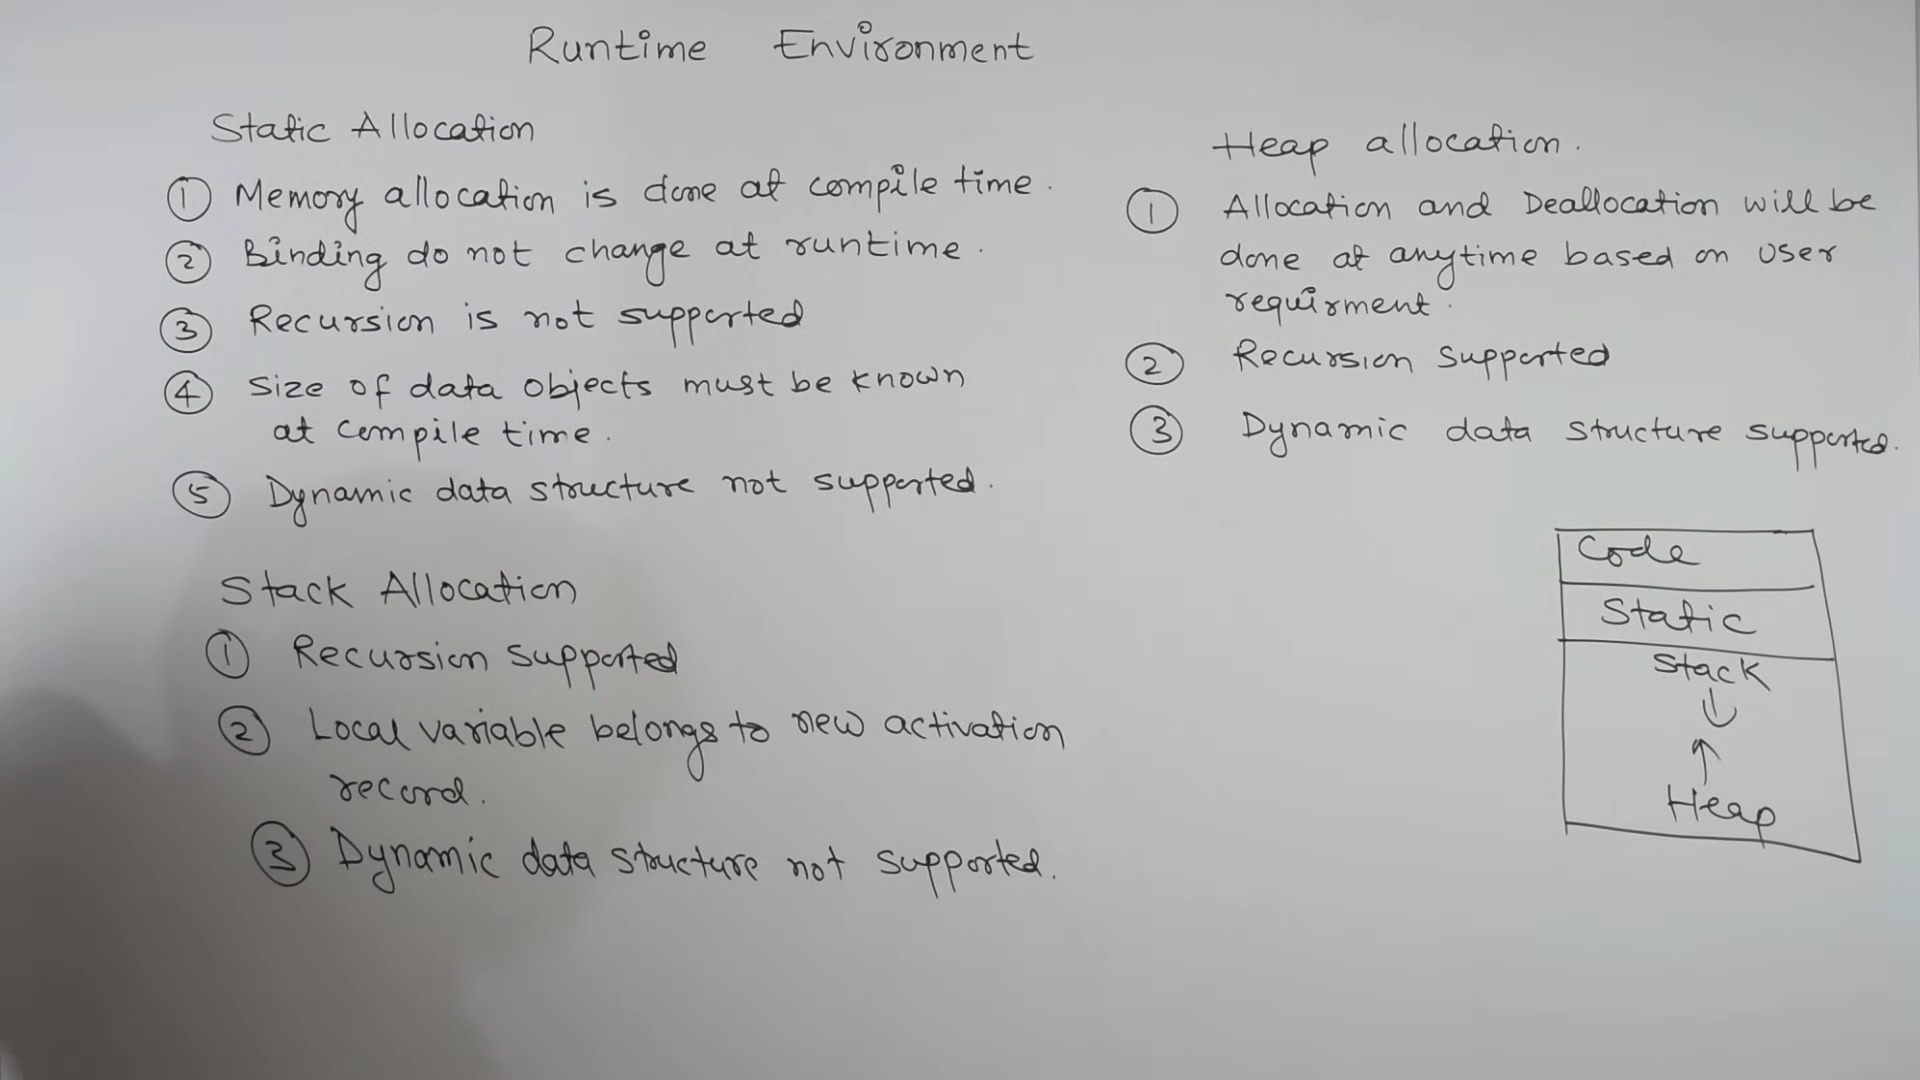 Runtime Environment
Static Allocation
① Memory allocation is done at compile time.
② Binding do not change at runtime.
③ Recursion is not supported
④ Size of data objects must be known
at compile time.
⑤ Dynamic data structure not supported.
Stack Allocation
① Recursion supported
② Local variable belongs to new activation
record.
③ Dynamic data structure not supported.
Heap allocation.
① Allocation and Deallocation will be
done at anytime based on user
requirment.
② Recursion supported
③ Dynamic data structure supported.
Code
Static
Stack
↓
↑
Heap